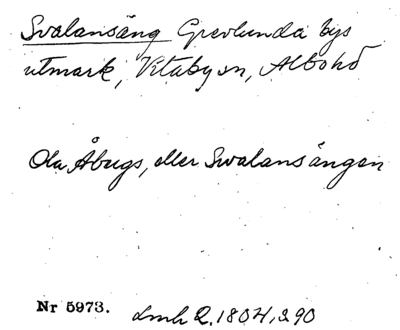 Svalansäng Grevlunda bys
utmark, Vitaby sn, Albo hd
Ola Åbugs, eller Swalansängen
Nr 5973. Lmh Q. 1804, s 90